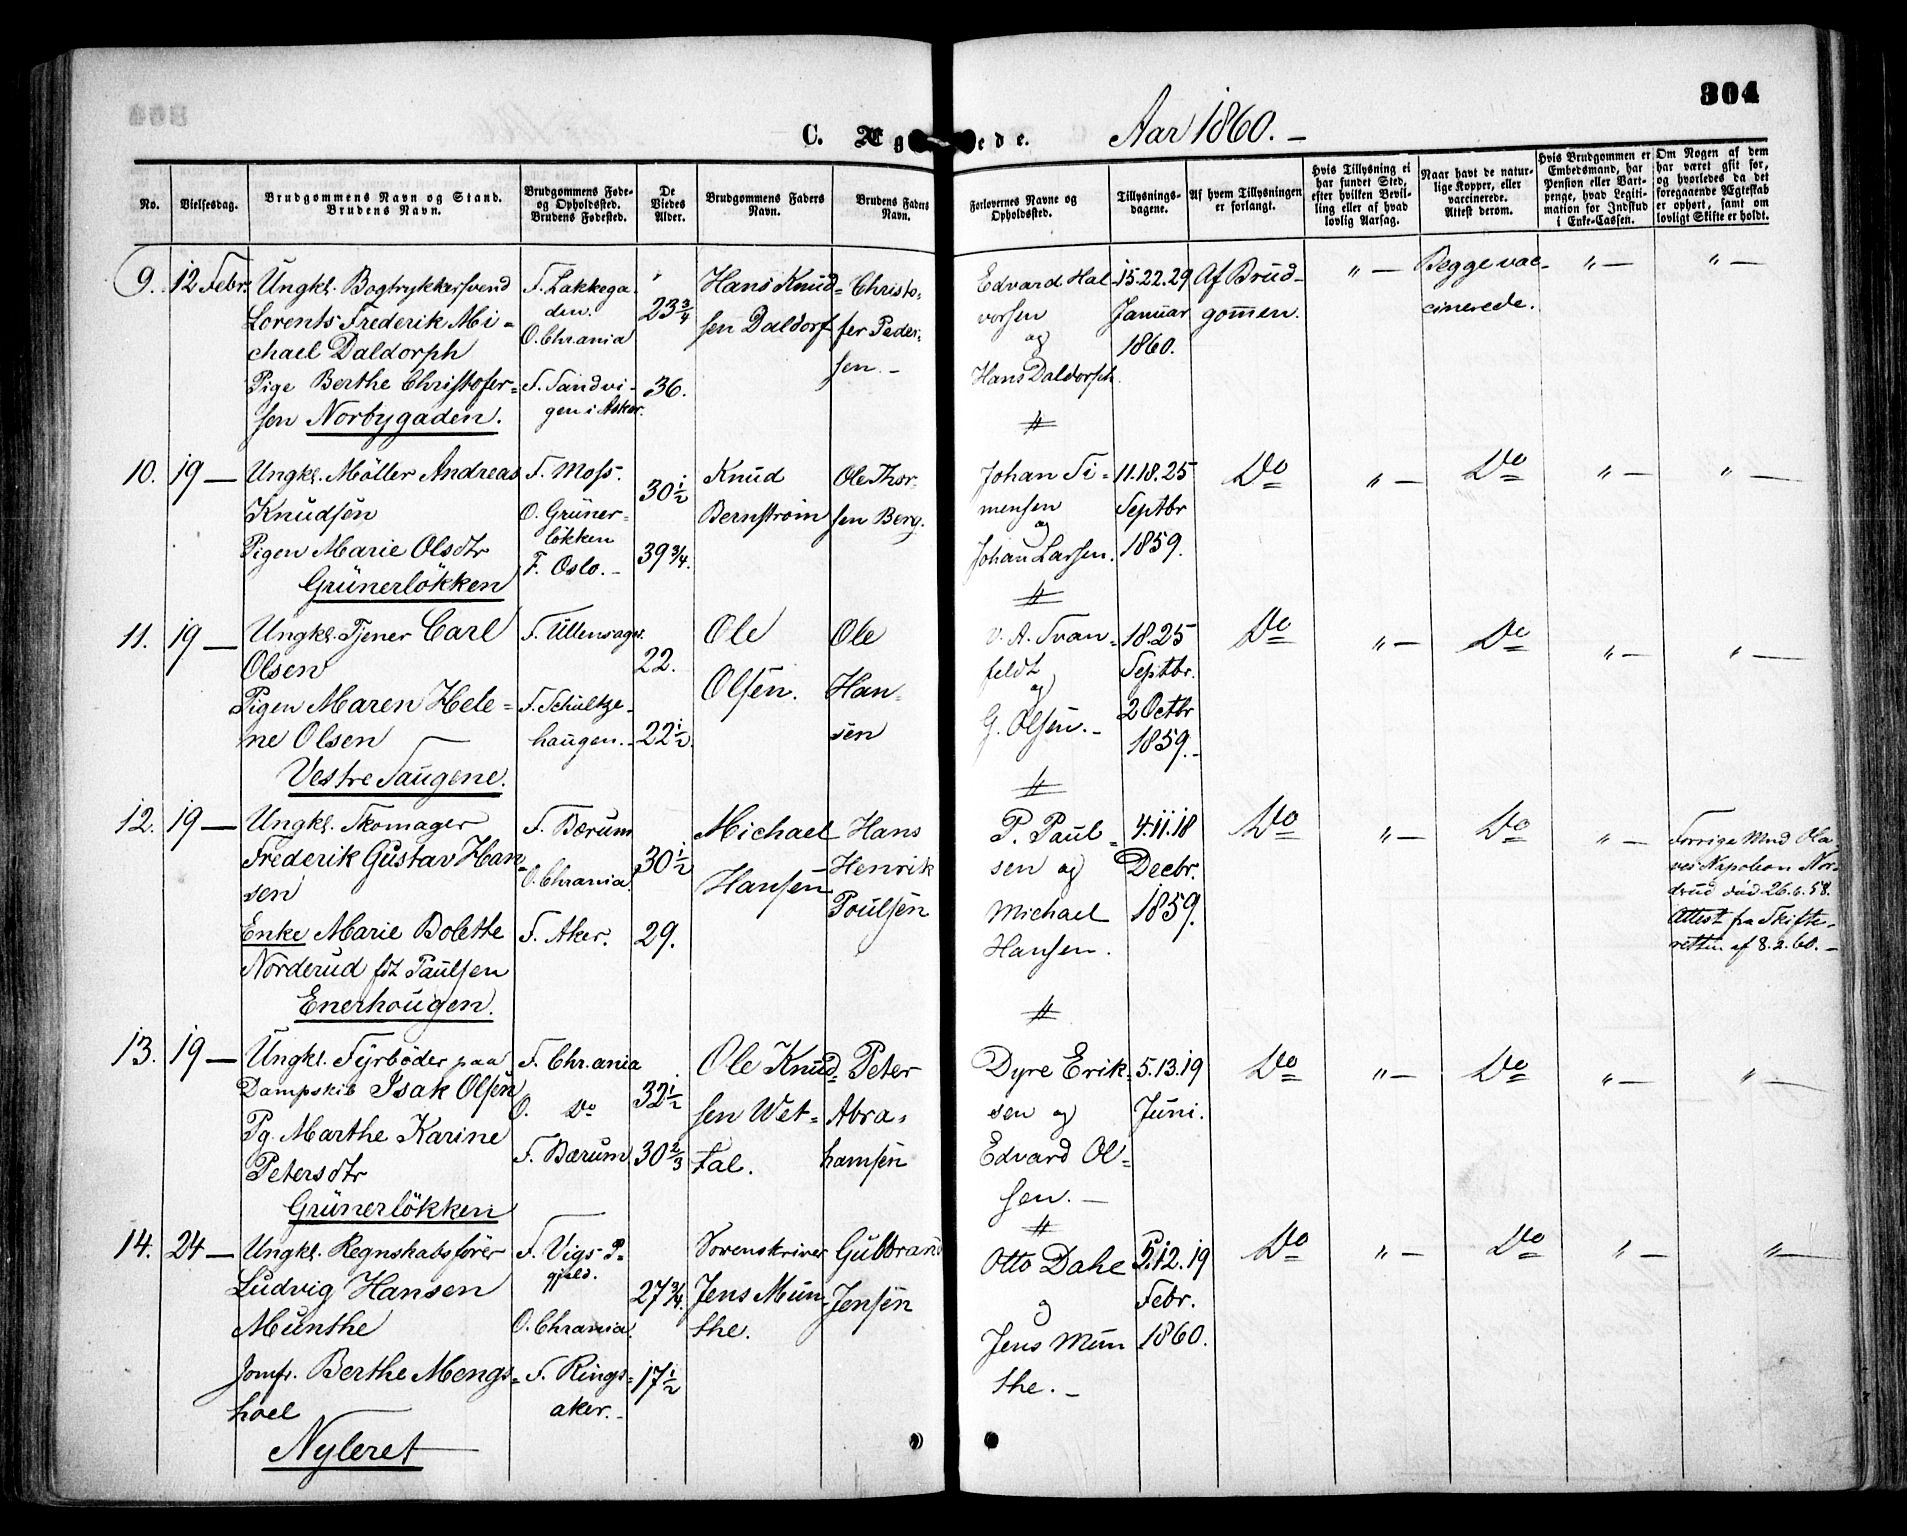 304
C. Ægtede. Aar 1860. –
No.
Vielsesdag.
Brudgommens Navn og Stand.
Brudens Navn.
Brudgommens Føde-
og Opholdssted.
Brudens Fødested.
De
Viedes
Alder.
Brudgommens Faders
Navn.
Brudens Faders
Navn.
Forlovernes Navne og
Opholdssted.
Tillysnings-
dagene.
Af hvem Tillysningen
er forlangt.
Hvis Tillysning ei
har fundet Sted,
efter hvilken Bevil-
ling eller af hvad
lovlig Aarsag.
Naar havt de natur-
lige Kopper, eller
vaccinerede.
Attest derom.
Hvis Brudgommen er
Embedsmand, har
Pension eller Vart-
penge, hvad Legiti-
mation for Indskud
i Enke-Cassen.
Om Nogen af dem
har været gift før,
og hvorledes da det
foregaaende Ægteskab
er ophørt, samt om
lovligt Skifte er holdt.
9. 12 Febr.
Ungkl. Bogtrykkersvend
Lorents Frederik Mi-
chael Daldorph
Pige Berthe Christofer-
sen Norbygaden.
F. Lakkega-
den.
O. Chrania
F. Sandvi-
gen i Asker.
23 3/4
36.
Hans Knud-
sen Daldorf
Christo-
fer Peder-
sen. –
Edvard Hal-
vorsen
og
Hans Daldorph.
15. 22. 29
Januar
1860.
Af Brud-
gommen.
" –
Begge vac-
cinerede.
" –
" –
10. 19 –
Ungkl. Møller Andreas
Knudsen
Pigen Marie Olsdtr
Grünerløkken
F. Moss.
O. Grüner-
løkken
F. Oslo. –
30 1/2
39 3/4.
Knud
Bernstrøm
Ole Thor-
sen Berg.
Johan Si-
mensen
og
Johan Larsen.
11. 18. 25
Septbr
1859.
Do
" –
Do
" –
" –
11. 19 –
Ungkl. Tjener Carl
Olsen
Pigen Maren Hele-
ne Olsen
Vestre Saugene.
F. Ullensager.
F. Schultze-
haugen. –
22.
22 1/2.
Ole
Olsen.
Ole
Han-
sen
V. A. Svan-
feldt
og
G. Olsen. –
18. 25
Septbr.
2 Octbr
1859. –
Do
" –
Do
" –
" –
12. 19 –
Ungkl. Skomager
Frederik Gustav Han-
sen
Enke Marie Bolette
Norderud fdt Paulsen
Enerhougen.
F. Bærum
O. Chrania.
F. Aker.
30 1/2
29.
Michael
Hansen
Hans
Henrik
Poulsen
P. Paul-
sen og
Michael
Hansen.
4. 11. 18
Decbr.
1859.
Do
" –
Do
" –
Forrige Mand Ola-
ves Napoleon Nor-
drud død 26.6.58.
Attest fra Skifte-
retten af 8.2.60. –
13. 19 –
Ungkl. Fyrbøder paa
Dampskib Isak Olsen
Pg. Marthe Karine
Petersdtr
Grünerløkken
F. Chrania
O. Do
F. Bærum
32 1/2
30 2/3
Ole Knud-
sen Wet-
tal.
Peter
Abra-
hamsen
Dyre Erik-
sen og
Edvard Ol-
sen. –
5. 13. 19
Juni.
Do
" –
Do
" –
" –
14. 24 –
Ungkl. Regnskabsfører
Ludvig Hansen
Munthe
Jomfr. Berthe Mengs-
hoel
Nyleret
F. Vigs P-
gjeld.
O. Chrania.
F. Rings-
aker. –
27 3/4.
17 1/2
Sorenskriver
Jens Mun-
the.
Gulbrand
Jensen
Otto Dahl
og
Jens Mun-
the. –
5. 12. 19
Febr.
1860.
Do
" –
Do
" –
" –